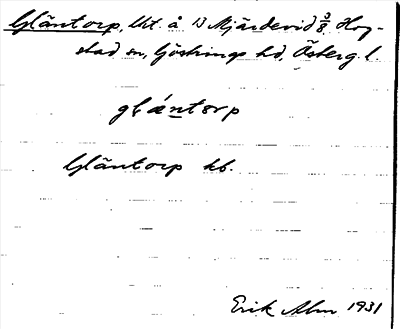 Gläntorp, lht. å 13 Mjärdevid 3/8, Hog-
stad sn, Göstrings hd, Österg. l.
glántorp
Gläntorp kb.
Erik Alm 1931